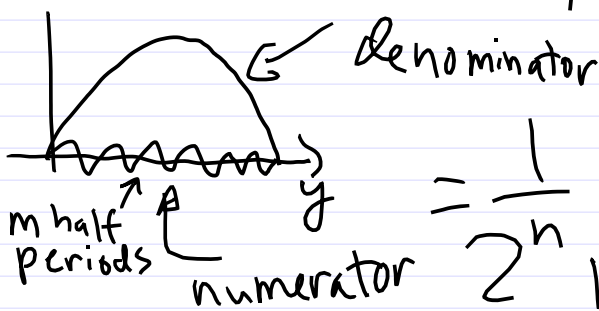 denominator
y
m half
periods
numerator
= 1
2^n